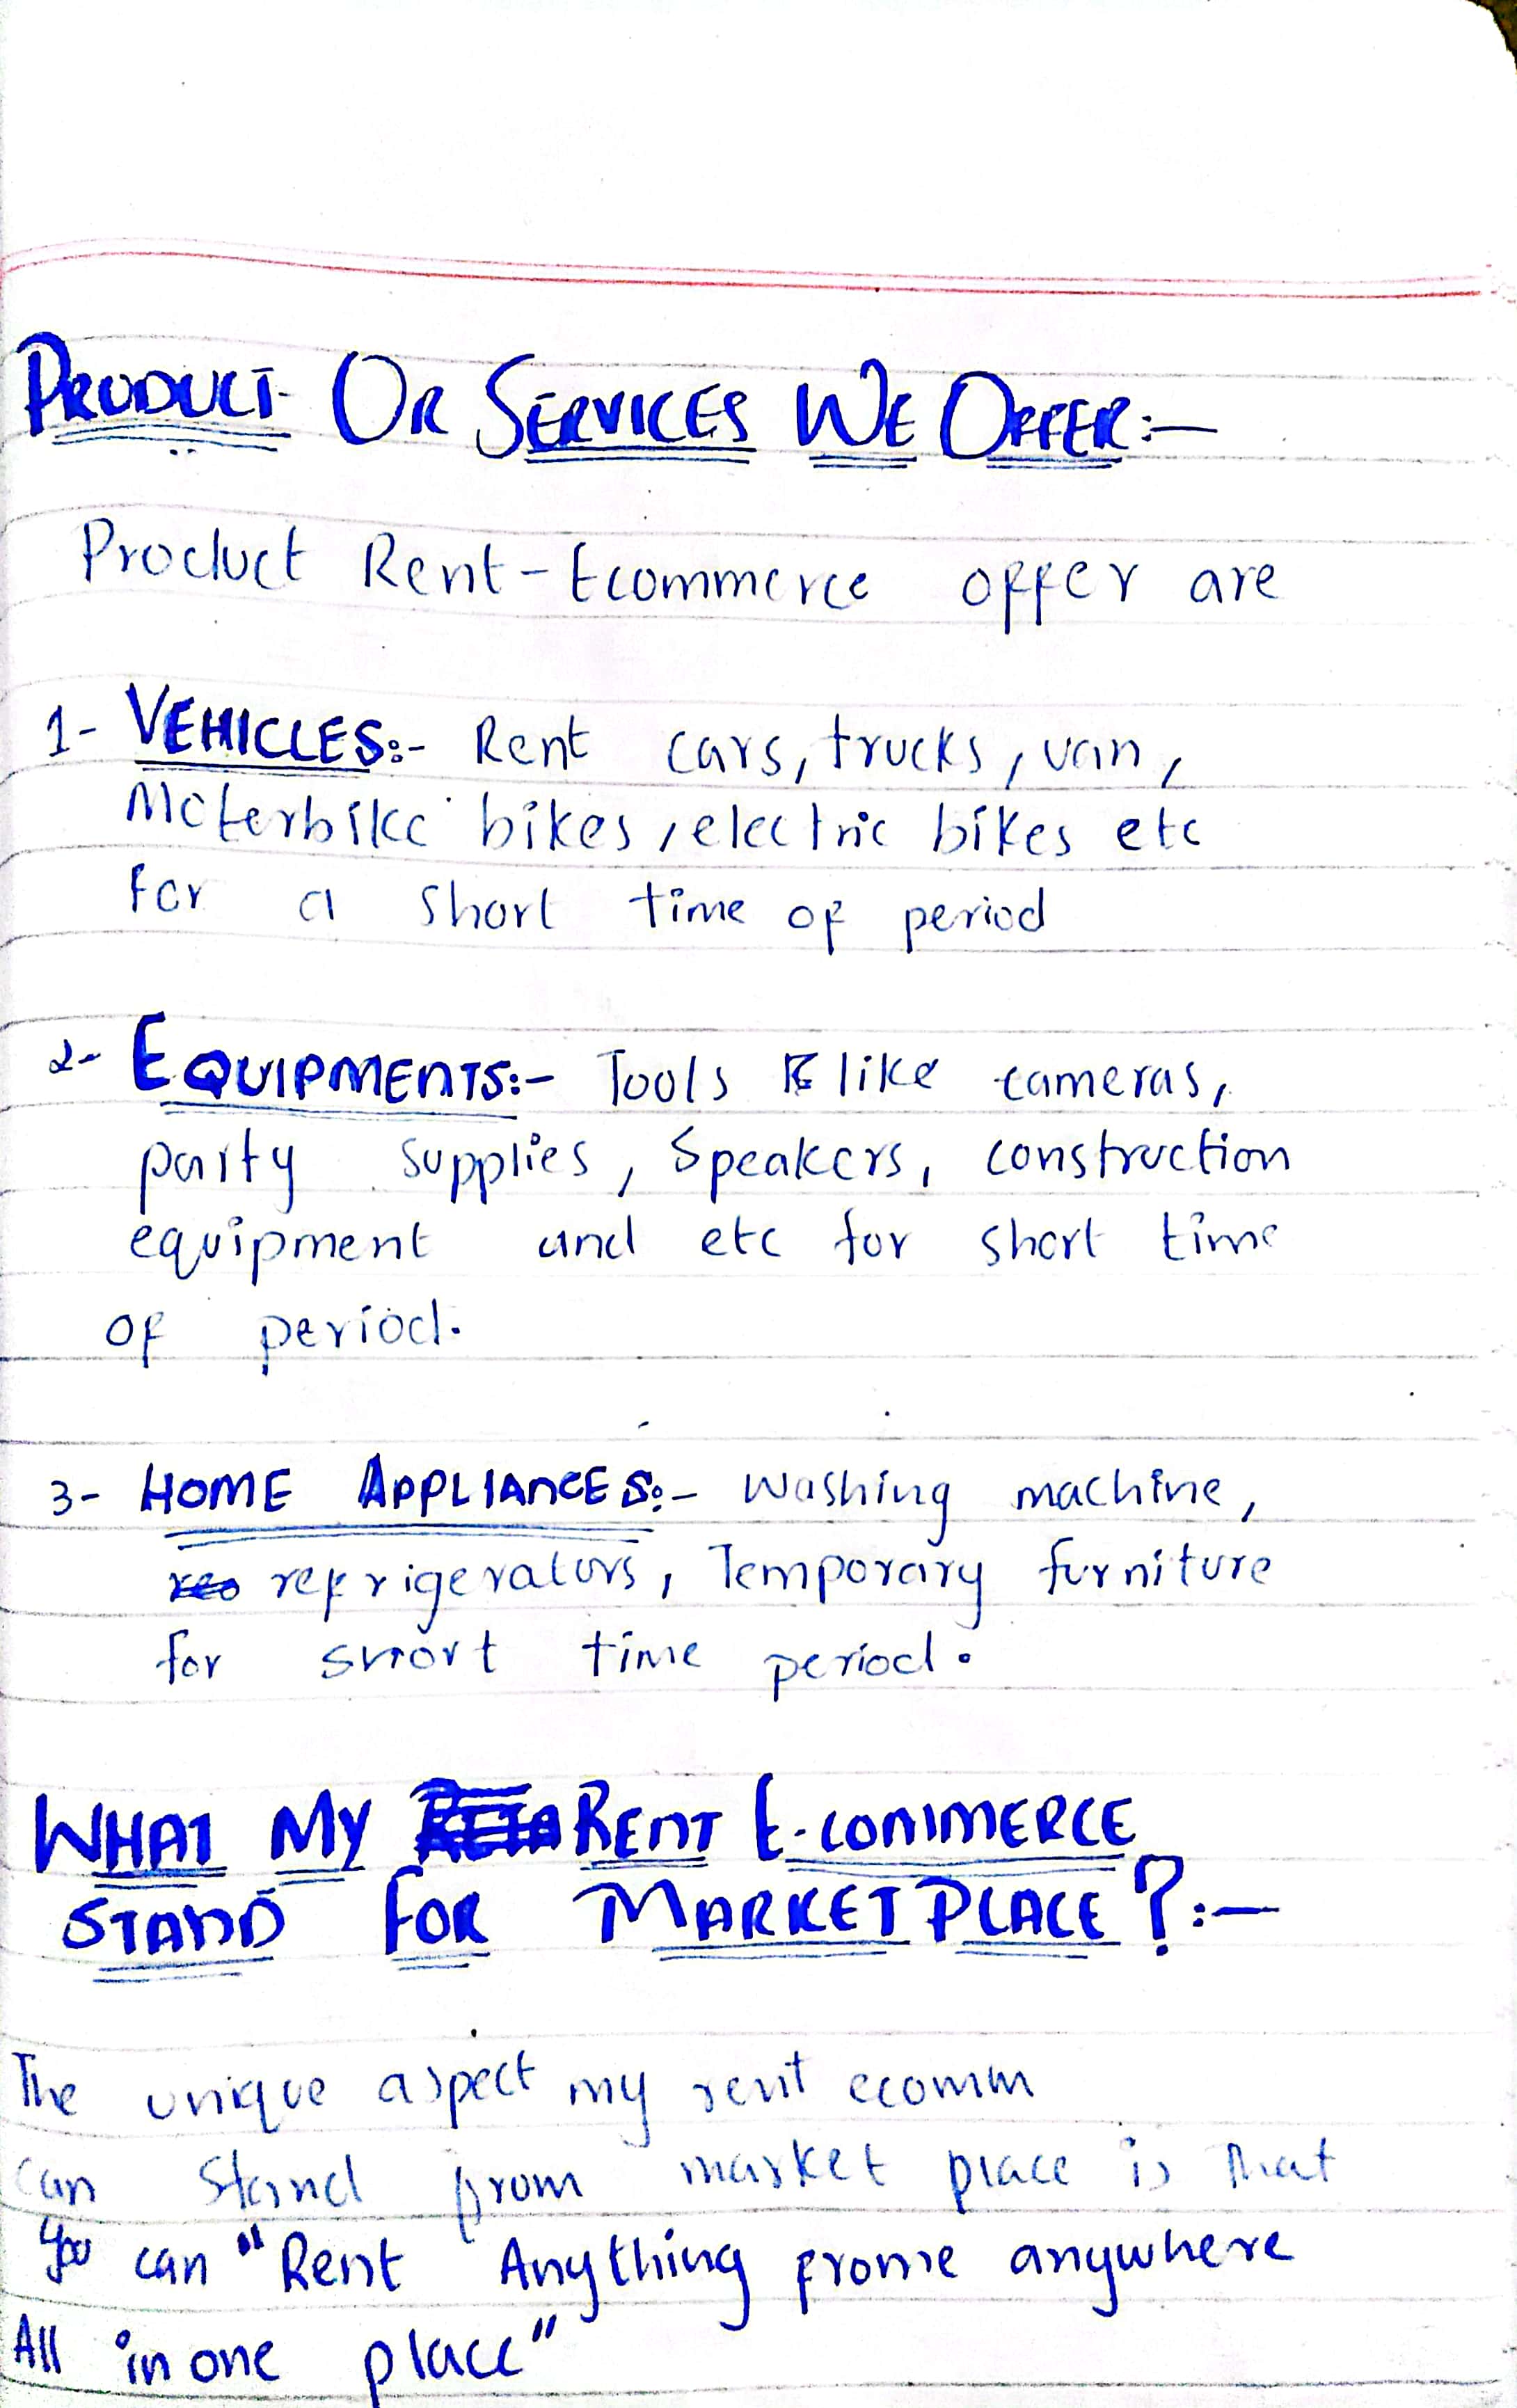 PRODUCT OR SERVICES WE OFFER:-
Product Rent-Ecommerce offer are
1- VEHICLES:- Rent cars, trucks, van,
Moterbike bikes, electric bikes etc
For a short time of period
2- EQUIPMENTS:- Tools like cameras,
party supplies, speakers, construction
equipment and etc for short time
of period.
3- HOME APPLIANCES:- Washing machine,
refrigerators, Temporary furniture
for short time period.
WHAT MY RENT E-COMMERCE
STAND FOR MARKETPLACE?:-
The unique aspect my rent ecomm
can stand from market place is that
You can "Rent Anything frome anywhere
All in one place"